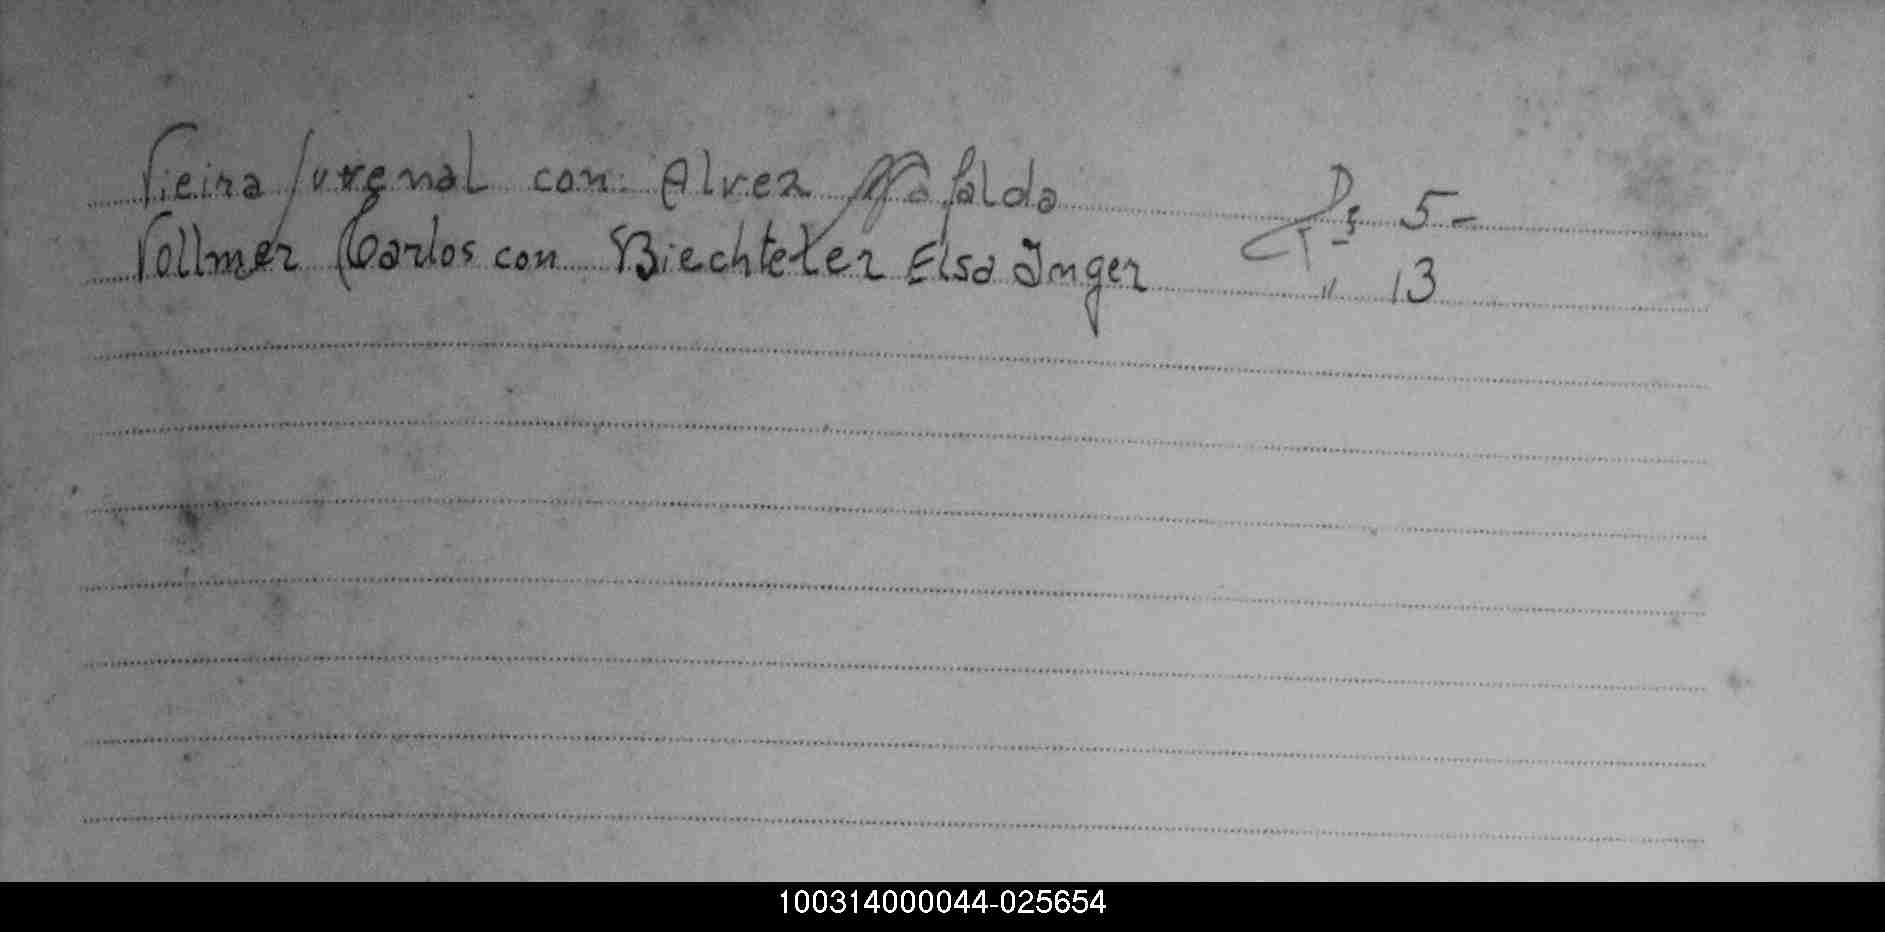 Vieira Juvenal con Alvez Mafalda Pg 5-
Vollmer Carlos con Biechteler Elsa Inger " 13
100314000044-025654